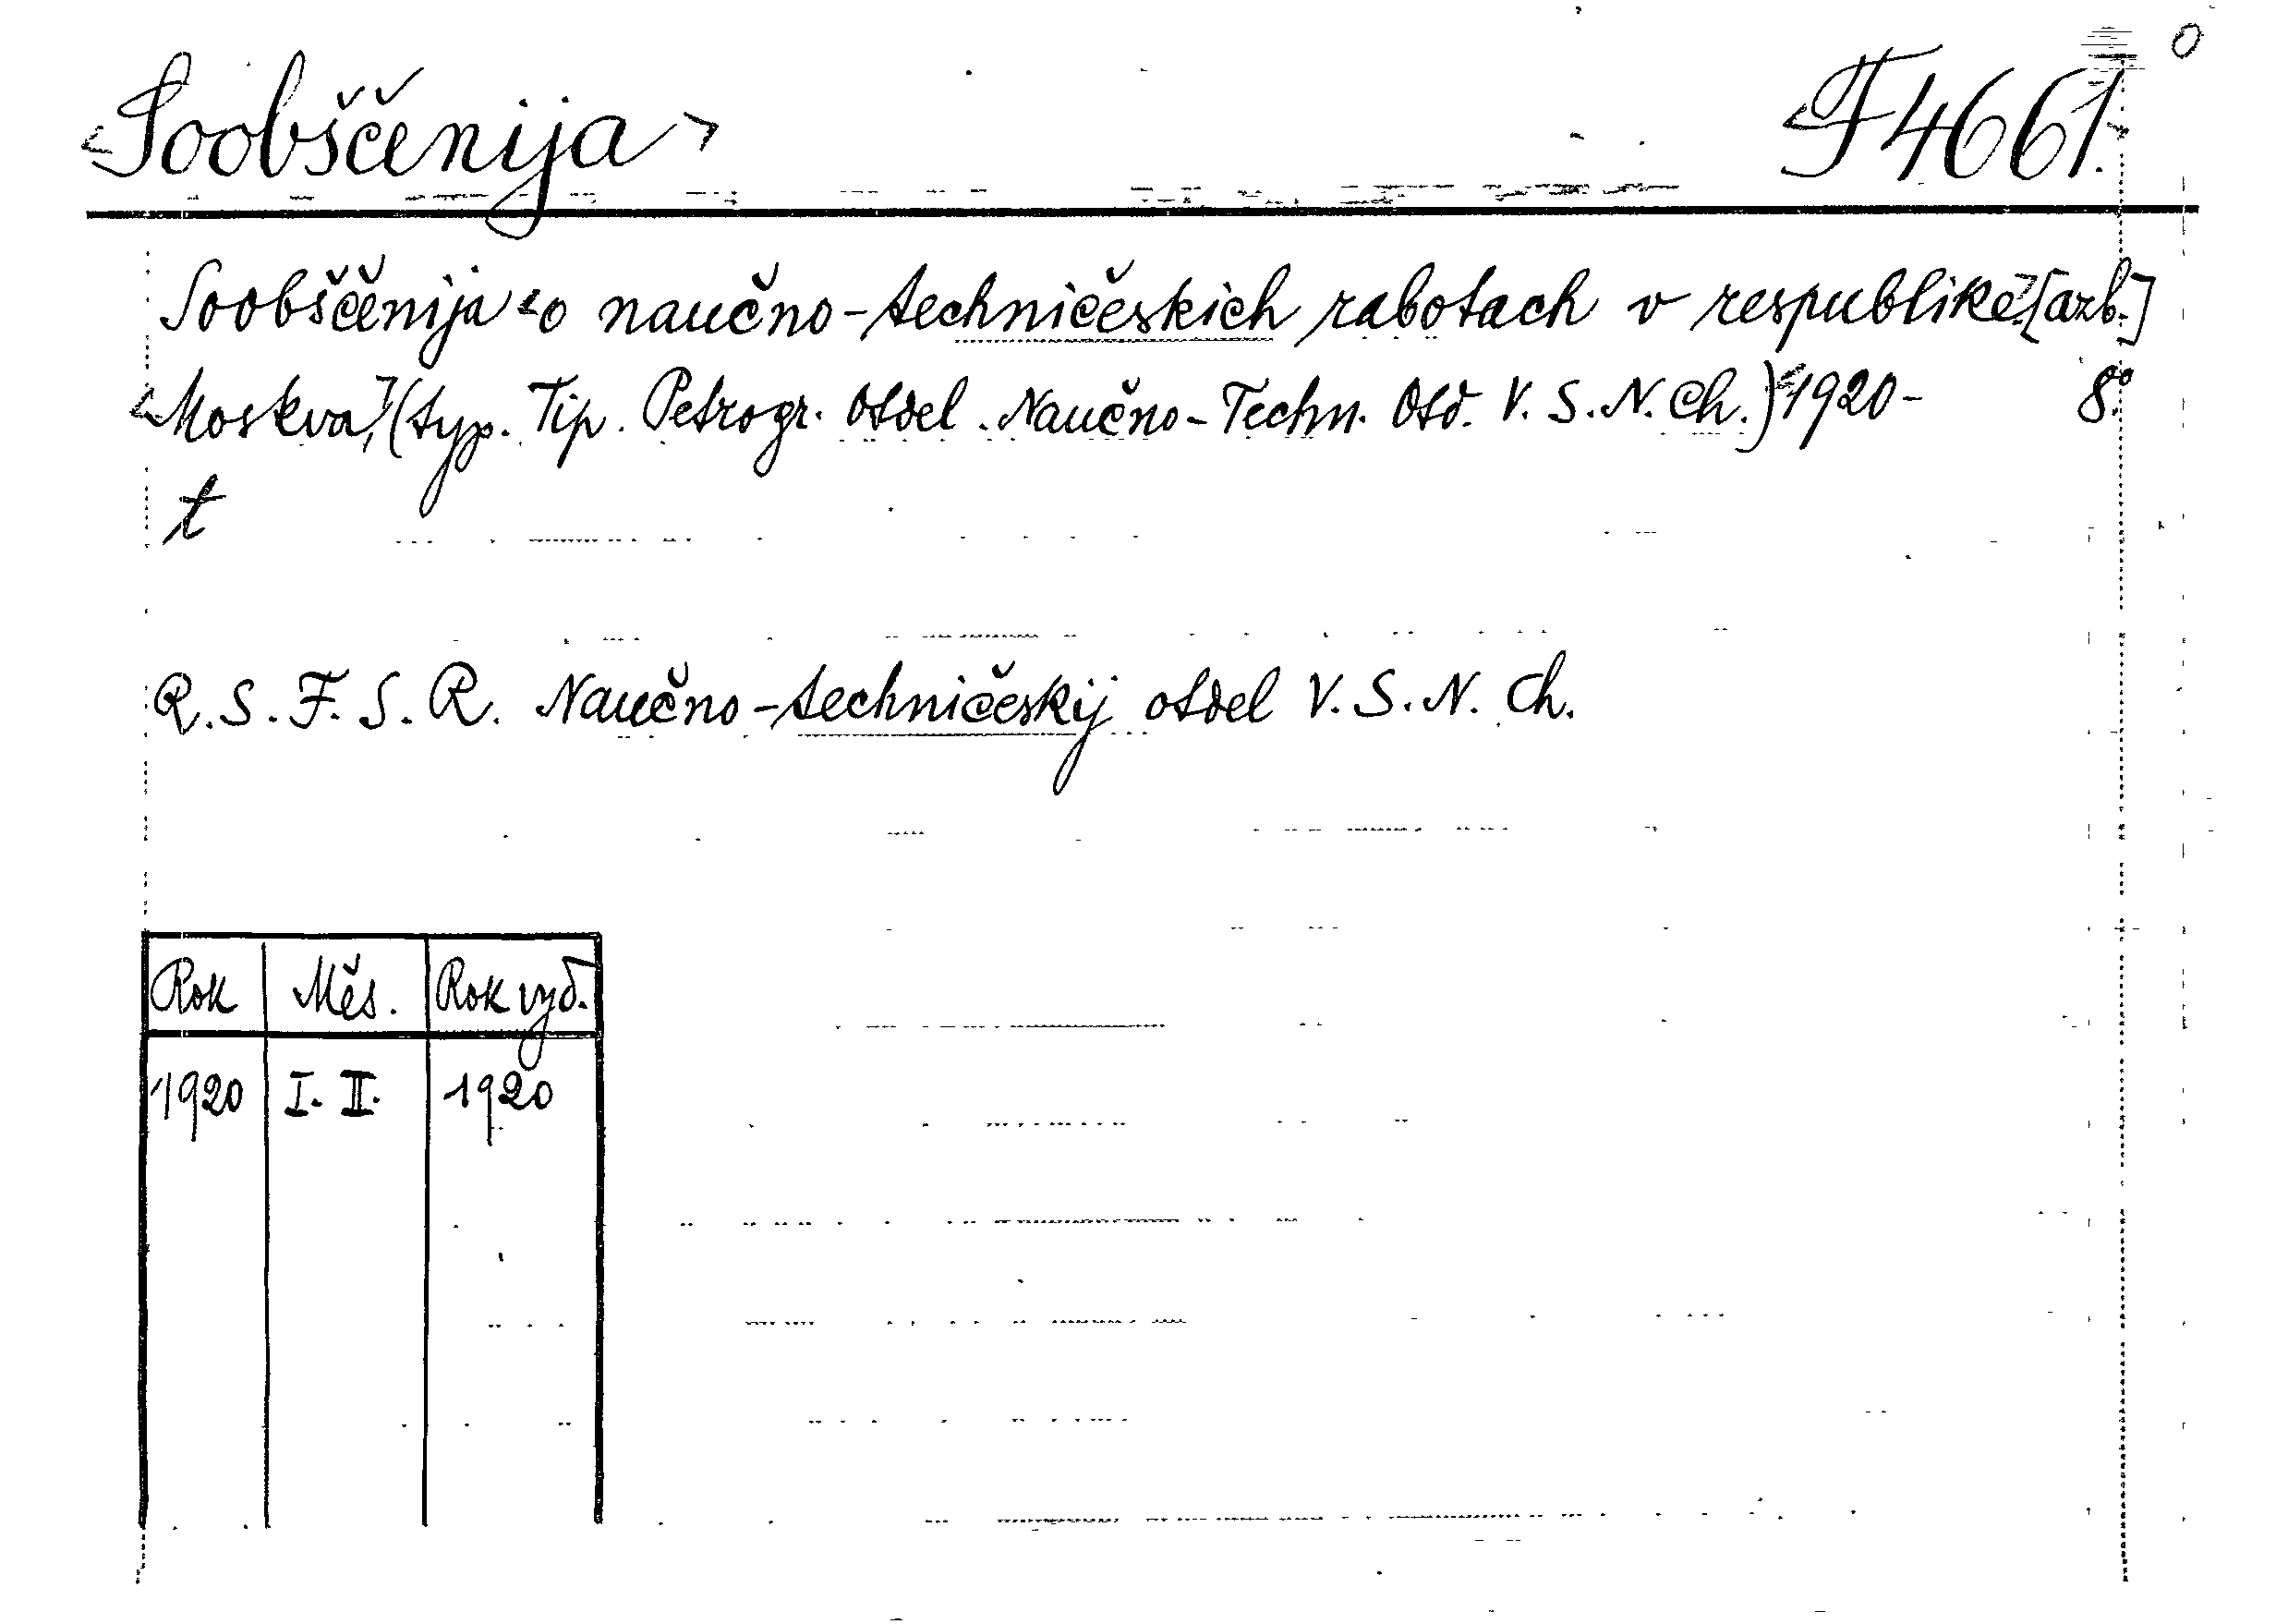 <Soobščenija> <F 4661.>
Soobščenija <o naučno-techničeskich rabotach v respublike.> [azb.]
<Moskva,> (typ. Tip. Petrogr. Otdel. Naučno-Techn. Otd. V. S. N. Ch.) <1920- 8.°
t
R. S. F. S. R. Naučno-techničeskij otdel V. S. N. Ch.
Rok Měs. Rok vyd.
1920 I. II. 1920